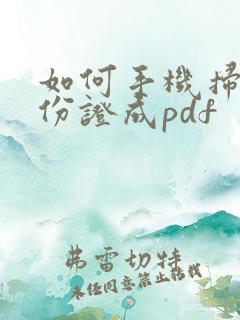 如何手機掃
份證成pdf
弗雷切特
未经同意禁止转载